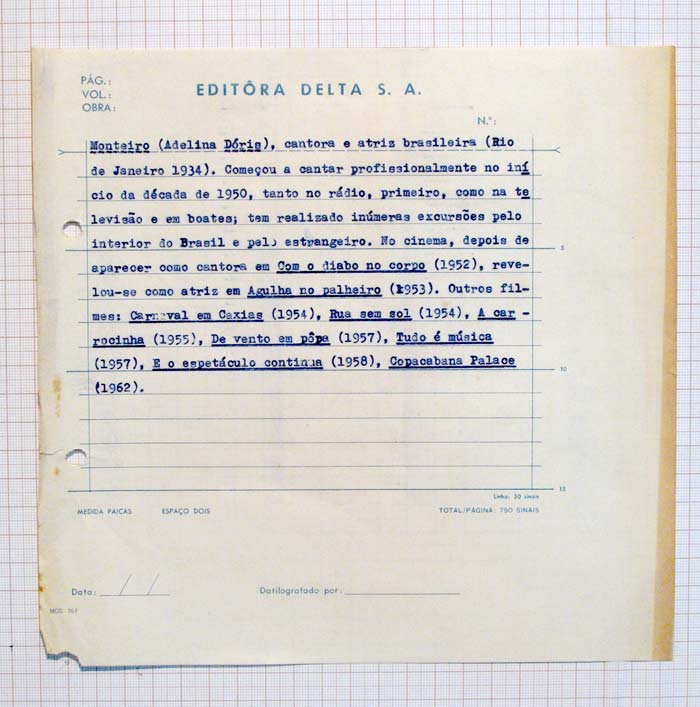 PÁG.:
VOL.:
OBRA:
EDITÔRA DELTA S. A.
N.º:
Monteiro (Adelina Dóris), cantora e atriz brasileira (Rio
de Janeiro 1934). Começou a cantar profissionalmente no iní
cio da década de 1950, tanto no rádio, primeiro, como na te
levisão e em boates; tem realizado inúmeras excursões pelo
interior do Brasil e pelo estrangeiro. No cinema, depois de
5
aparecer como cantora em Com o diabo no corpo (1952), reve-
lou-se como atriz em Agulha no palheiro (1953). Outros fil-
mes: Carnaval em Caxias (1954), Rua sem sol (1954), A car-
rocinha (1955), De vento em pôpa (1957), Tudo é música
(1957), E o espetáculo continua (1958), Copacabana Palace
10
(1962).
15
Linha: 50 sinais
MEDIDA PAICAS ESPAÇO DOIS TOTAL/PÁGINA: 750 SINAIS
Data: / / Datilografado por:
MOD.